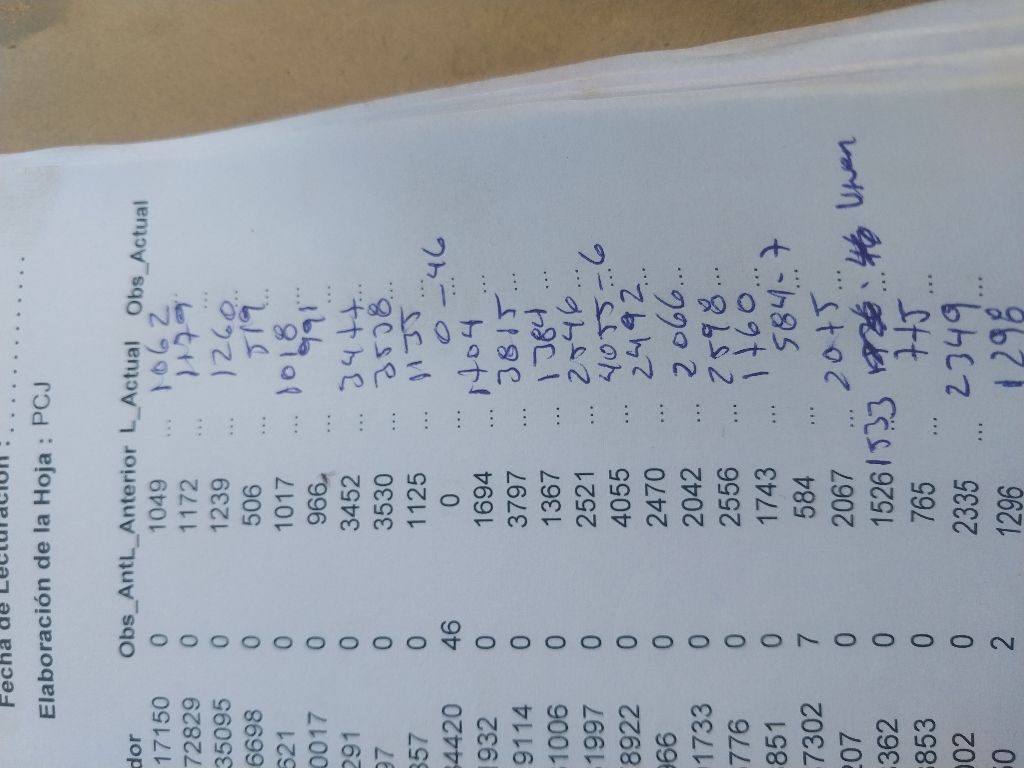 Fecha de Lecturación : . . . . . . . . . . . . . . .
Elaboración de la Hoja : PCJ
dor Obs_AntL_Anterior L_Actual Obs_Actual
17150 0 1049 ... 1062 ...
72829 0 1172 ... 1179 ...
35095 0 1239 ... 1260 ...
6698 0 506 ... 519 ...
621 0 1017 ... 1018 ...
0017 0 966 ... 991 ...
291 0 3452 ... 3477 ...
97 0 3530 ... 3538 ...
357 0 1125 ... 1135 ...
34420 46 0 ... 0 - 46
1932 0 1694 ... 1704 ...
19114 0 3797 ... 3815 ...
61006 0 1367 ... 1384 ...
51997 0 2521 ... 2546 ...
78922 0 4055 ... 4055 - 6
966 0 2470 ... 2492 ...
01733 0 2042 ... 2066 ...
5776 0 2556 ... 2598 ...
851 0 1743 ... 1760 ...
17302 7 584 ... 584 - 7
207 0 2067 ... 2075 ...
362 0 1526 1533
8853 0 765 ... 775 ...
002 0 2335 ... 2349 ...
50 2 1296 1298